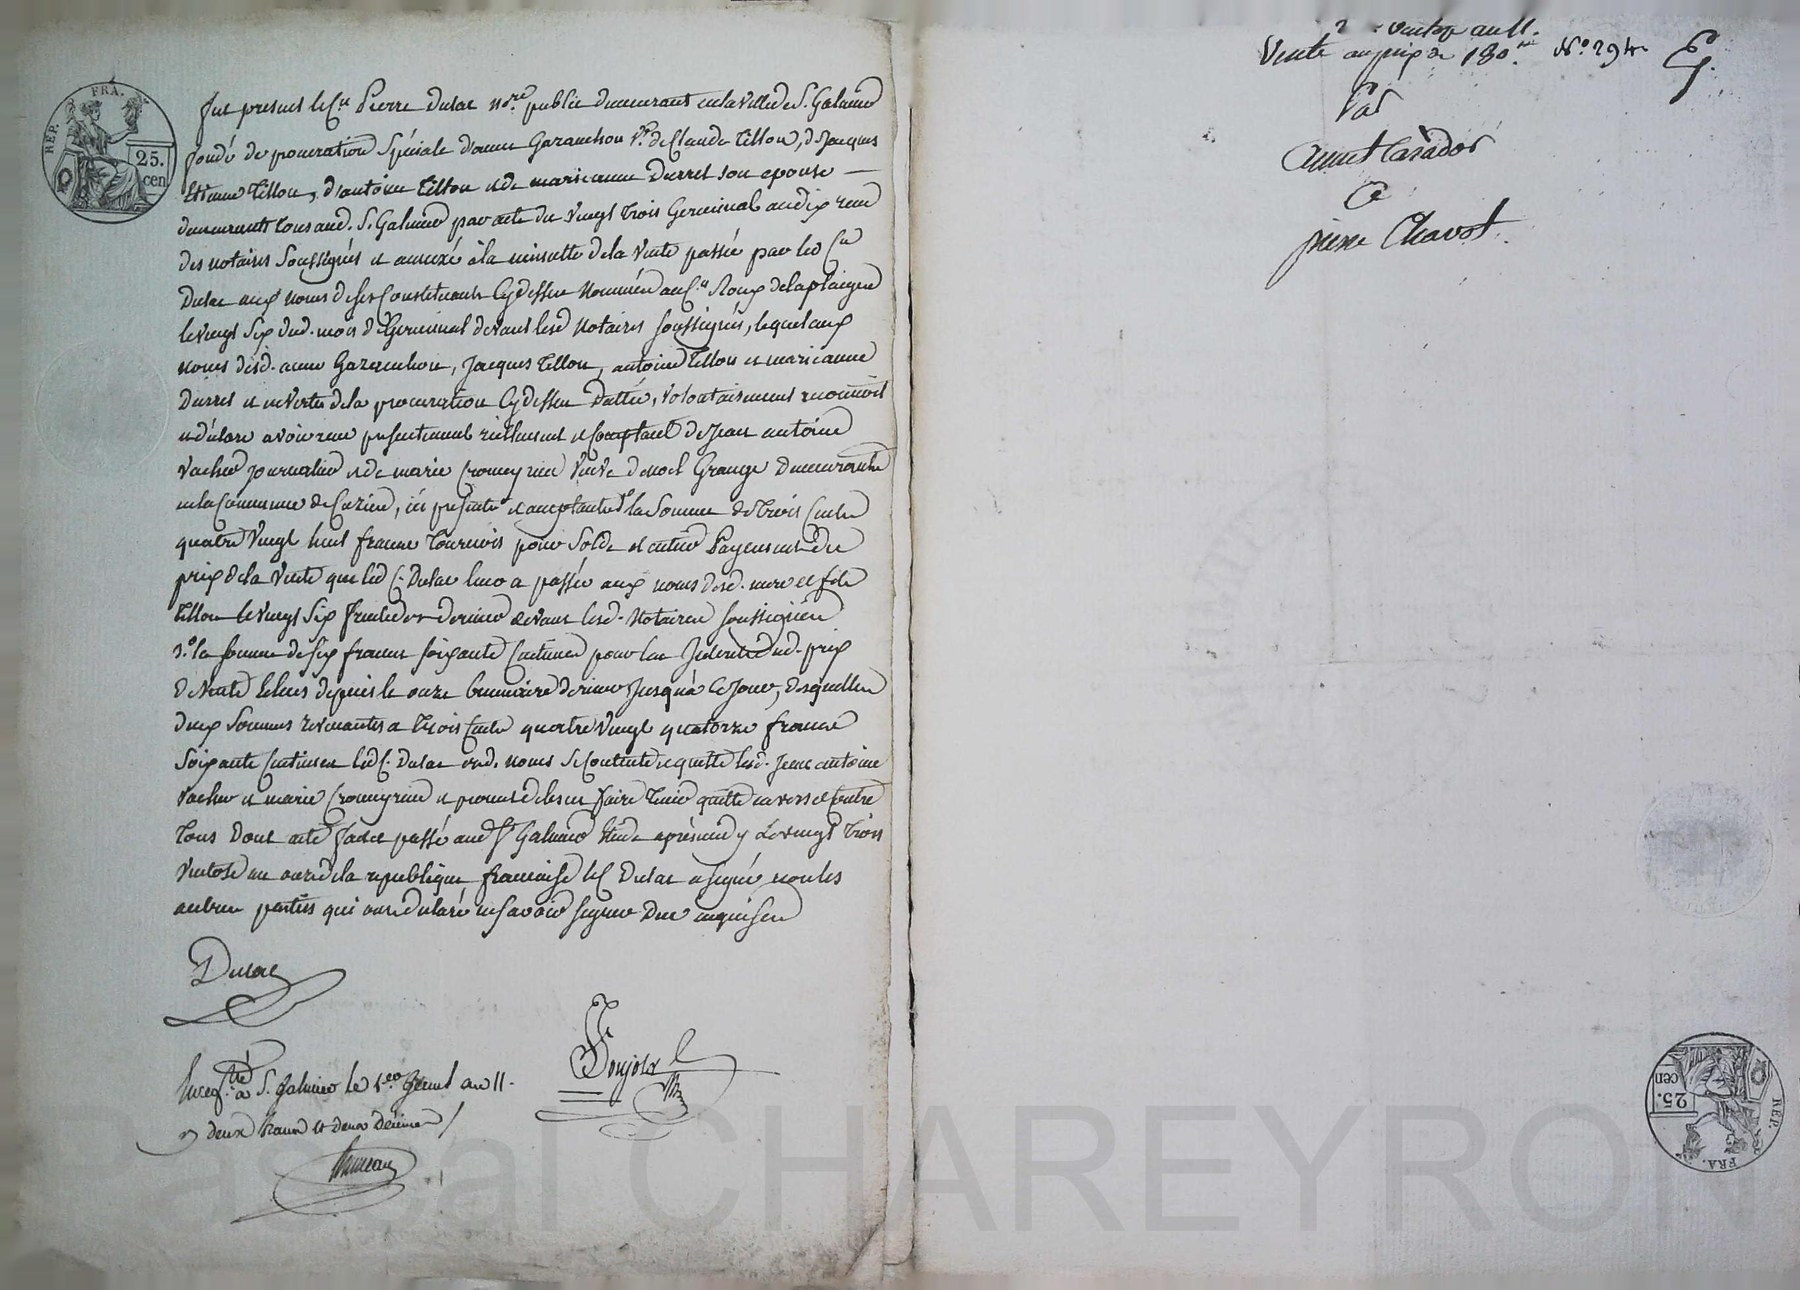 REP. FRA.
25.
cen
fut present le Cn Pierre Dulac nore public demeurant en la ville de St. Galmier
fondé de procuration Spéciale d'anne Garanchon Ve de Claude Tillon, de Jacques
Etienne Tillon, d'antoine Tillon et de marieanne Durret son epouse
demeurants tous aud. St. Galmier par acte du vingt trois Germinal an dix reçu
des notaires Soussignés et annexé à la minutte de la Vente passée par led Cn
Dulac aux noms de ses Constituants Cydessus Nommés au Cn Roux delaplaigne
le vingt Six dud. mois de Germinal devant lesd Notaires soussignés, lequel aux
noms desd. anne Garanchon, Jacques Tillon, antoine Tillon et marieanne
Durret et en vertu de la procuration Cydessus Dattée, volontairement reconnoit
et déclare avoir reçu presentement réellement et Comptant de Jean antoine
Vacher journalier et de marie Cromeyrieu Veuve de noel Grange demeurants
en la Commune de Cuzieu, ici presents et acceptants 1o la Somme de Trois Cents
quatre Vingt huit francs Tournois pour Solde et entier Payement du
prix de la Vente que led C. Dulac leur a passée aux noms desd. mere et fils
Tillon le vingt Six dernier devant lesd. Notaires soussignés
2.o la somme de six francs soixante Centimes pour les Interets dud. prix
de Vente Echus depuis le onze brumaire dernier Jusqu'à ce Jour, desquelles
deux Sommes revenantes a Trois Cents quatre Vingt quatorze francs
Soixante Centimes led C. Dulac esd. noms Se Contente et quitte lesd. Jean antoine
Vacher et marie Cromeyrieu et promet de les en faire Tenir quitte envers et Contre
Tous Dont acte fait et passé aud St Galmier Etude après midy Le vingt Trois
Ventose an onze de la republique française led C. Dulac a signé non les
autres parties qui ont déclaré ne savoir signer Due enquises
Dulac
Enregté à St. Galmier le 1er Germl an 11.
r deux francs et deux décimes
Ponjolx
2 Ventose an 11.
Vente au prix de 180 No 294
Par
annet Caradot
a
pierre Chavot.
REP. FRA.
25.
cen
Pascal CHAREYRON